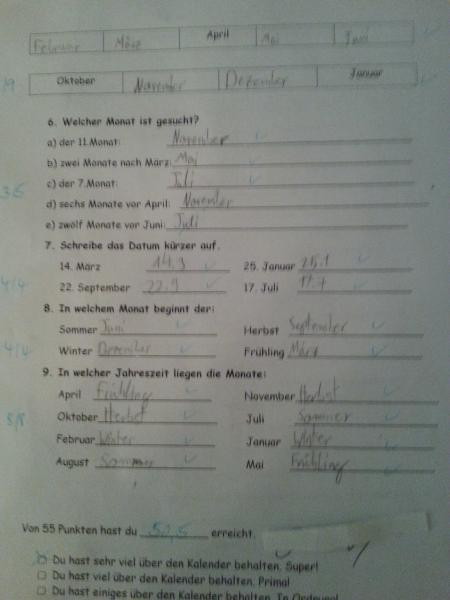 Februar März April Mai Juni
Oktober November Dezember Januar
6. Welcher Monat ist gesucht?
a) der 11. Monat: November
b) zwei Monate nach März: Mai
3/5 c) der 7. Monat: Juli
d) sechs Monate vor April: November
e) zwölf Monate vor Juni: Juli
7. Schreibe das Datum kürzer auf.
14. März 14.3 25. Januar 25.1
4/4 22. September 22.9 17. Juli 17.7
8. In welchem Monat beginnt der:
Sommer Juni Herbst September
4/4 Winter Dezember Frühling März
9. In welcher Jahreszeit liegen die Monate:
April Frühling November Herbst
8/8 Oktober Herbst Juli Sommer
Februar Winter Januar Winter
August Sommer Mai Frühling
Von 55 Punkten hast du 52,5 erreicht.
Du hast sehr viel über den Kalender behalten. Super!
Du hast viel über den Kalender behalten. Prima!
Du hast einiges über den Kalender behalten. In Ordnung!